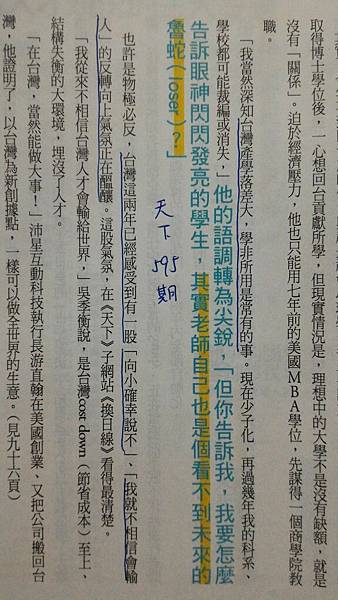 取得博士學位後，一心想回台貢獻所學，但現實情況是，理想中的大學不是沒有缺額，就是
沒有「關係」。迫於經濟壓力，他也只能用七年前的美國MBA學位，先謀得一個商學院教
職。
「我當然深知台灣產學落差大，學非所用是常有的事。現在少子化，再過幾年我的科系、
學校都可能裁編或消失，」他的語調轉為尖銳，「但你告訴我，我要怎麼
告訴眼神閃閃發亮的學生，其實老師自己也是個看不到未來的
魯蛇（loser）？」
天下 595 期
也許是物極必反，台灣這兩年已經感受到有一股「向小確幸說不」、「我就不相信會輸
人」的反轉向上氣氛正在醞釀。這股氣氛，在《天下》子網站《換日線》看得最清楚。
「我從來不相信台灣人才會輸給世界，」吳季衡說，是台灣cost down（節省成本）至上、
結構失衡的大環境，埋沒了人才。
「在台灣，當然能做大事！」沛星互動科技執行長游直翰在美國創業、又把公司搬回台
灣，他證明了，以台灣為新創據點，一樣可以做全世界的生意。（見九十六頁）